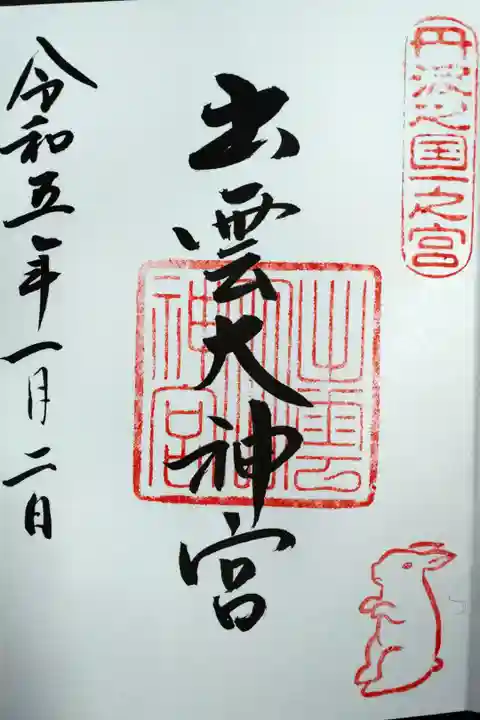 丹波之国一之宮
出雲大神宮
出雲大神宮
令和五年一月二日